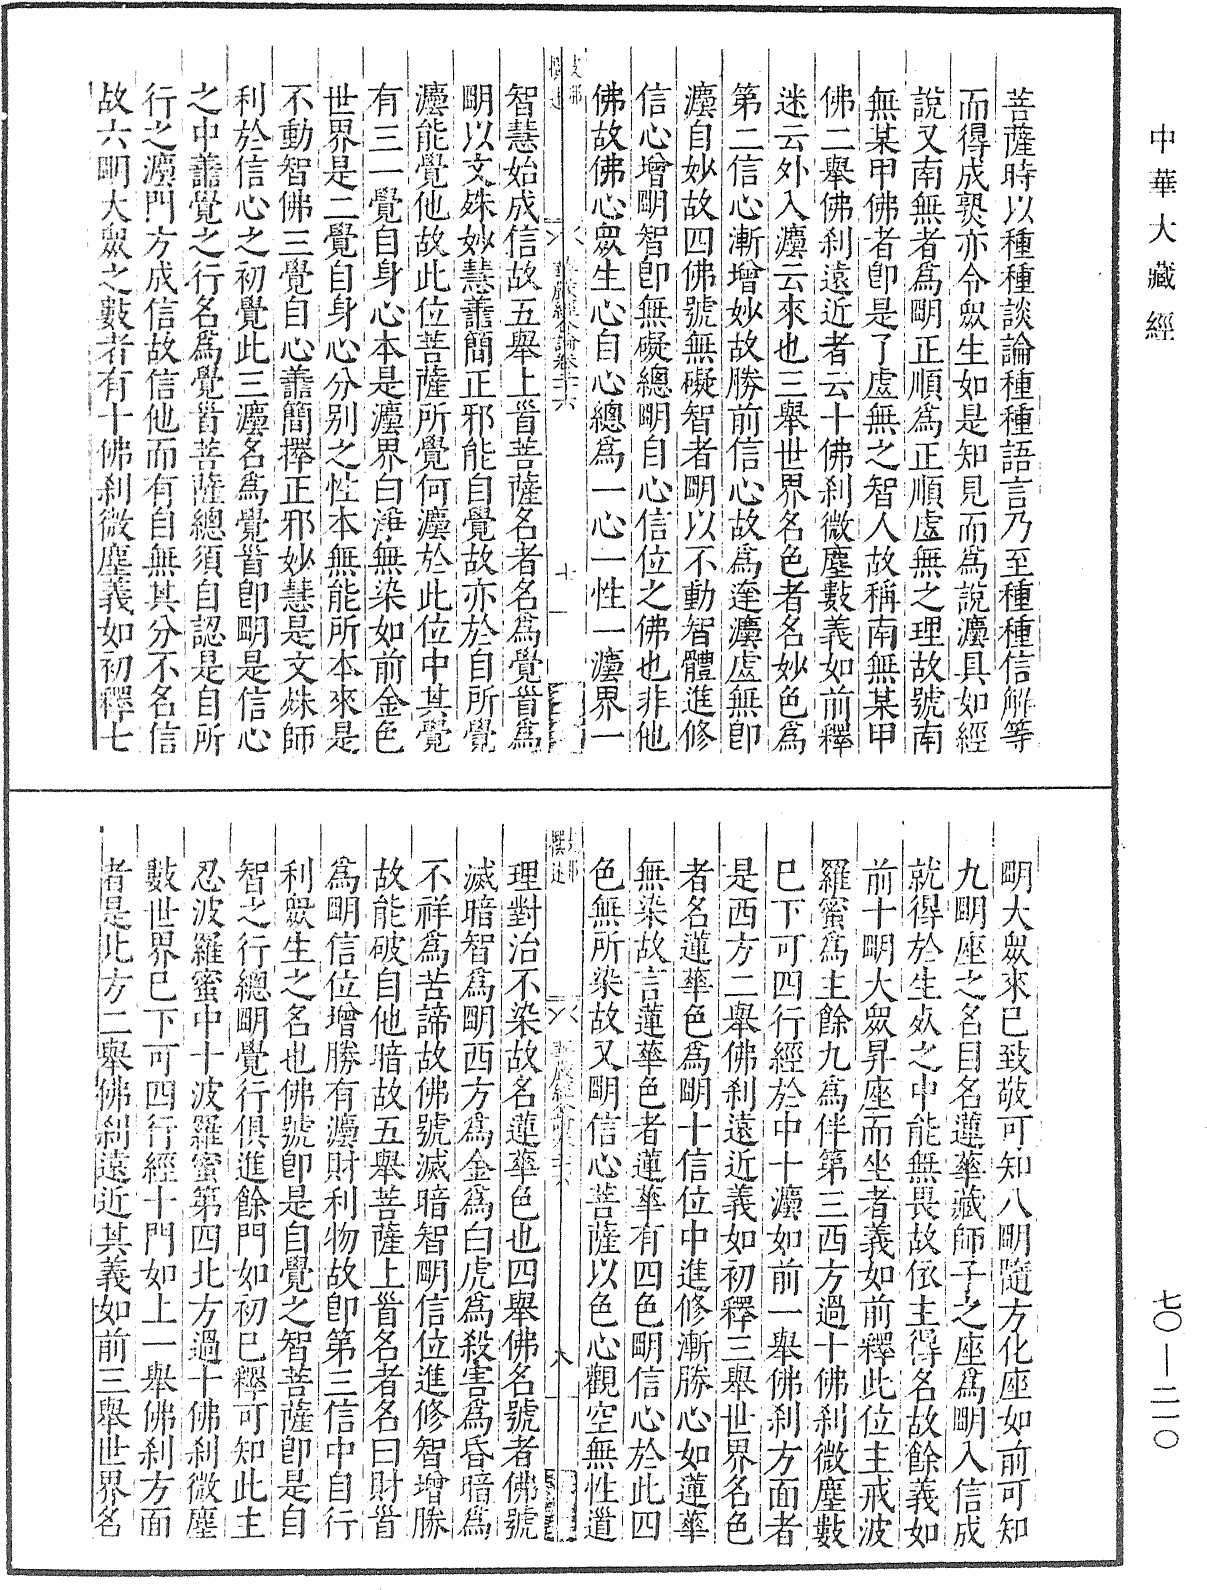 中華大藏經
七〇—二一〇
菩薩時以種種談論種種語言乃至種種信解等
而得成熟亦令眾生如是知見而為說灋具如經
說又南無者為明正順為正順虛無之理故號南
無某甲佛者卽是了虛無之智人故稱南無某甲
佛二舉佛剎遠近者云十佛剎微塵數義如前釋
迷云外入灋云來也三舉世界名色者名妙色為
第二信心漸增妙故勝前信心故為達灋虛無卽
灋自妙故四佛號無礙智者明以不動智體進修
信心增明智卽無礙總明自心信位之佛也非他
佛故佛心眾生心自心總為一心一性一灋界一
智慧始成信故五舉上首菩薩名者名為覺首為
明以文殊妙慧善簡正邪能自覺故亦於自所覺
灋能覺他故此位菩薩所覺何灋於此位中其覺
有三一覺自身心本是灋界白淨無染如前金色
世界是二覺自身心分別之性本無能所本來是
不動智佛三覺自心善簡擇正邪妙慧是文殊師
利於信心之初覺此三灋名為覺首卽明是信心
之中善覺之行名為覺首菩薩總須自認是自所
行之灋門方成信故信他而有自無其分不名信
故六明大眾之數者有十佛剎微塵義如初釋七
明大眾來已致敬可知八明隨方化座如前可知
九明座之名目名蓮華藏師子之座為明入信成
就得於生死之中能無畏故依主得名故餘義如
前十明大眾昇座而坐者義如前釋此位主戒波
羅蜜為主餘九為伴第三西方過十佛剎微塵數
巳下可四行經於中十灋如前一舉佛剎方面者
是西方二舉佛剎遠近義如初釋三舉世界名色
者名蓮華色為明十信位中進修漸勝心如蓮華
無染故言蓮華色者蓮華有四色明信心於此四
色無所染故又明信心菩薩以色心觀空無性道
理對治不染故名蓮華色也四舉佛名號者佛號
滅暗智為明西方為金為白虎為殺害為昏暗為
不祥為苦諦故佛號滅暗智明信位進修智增勝
故能破自他暗故五舉菩薩上首名者名曰財首
為明信位增勝有灋財利物故卽第三信中自行
利眾生之名也佛號卽是自覺之智菩薩卽是自
智之行總明覺行俱進餘門如初巳釋可知此主
忍波羅蜜中十波羅蜜第四北方過十佛剎微塵
數世界巳下可四行經十門如上一舉佛剎方面
者是北方二舉佛剎遠近其義如前三舉世界名